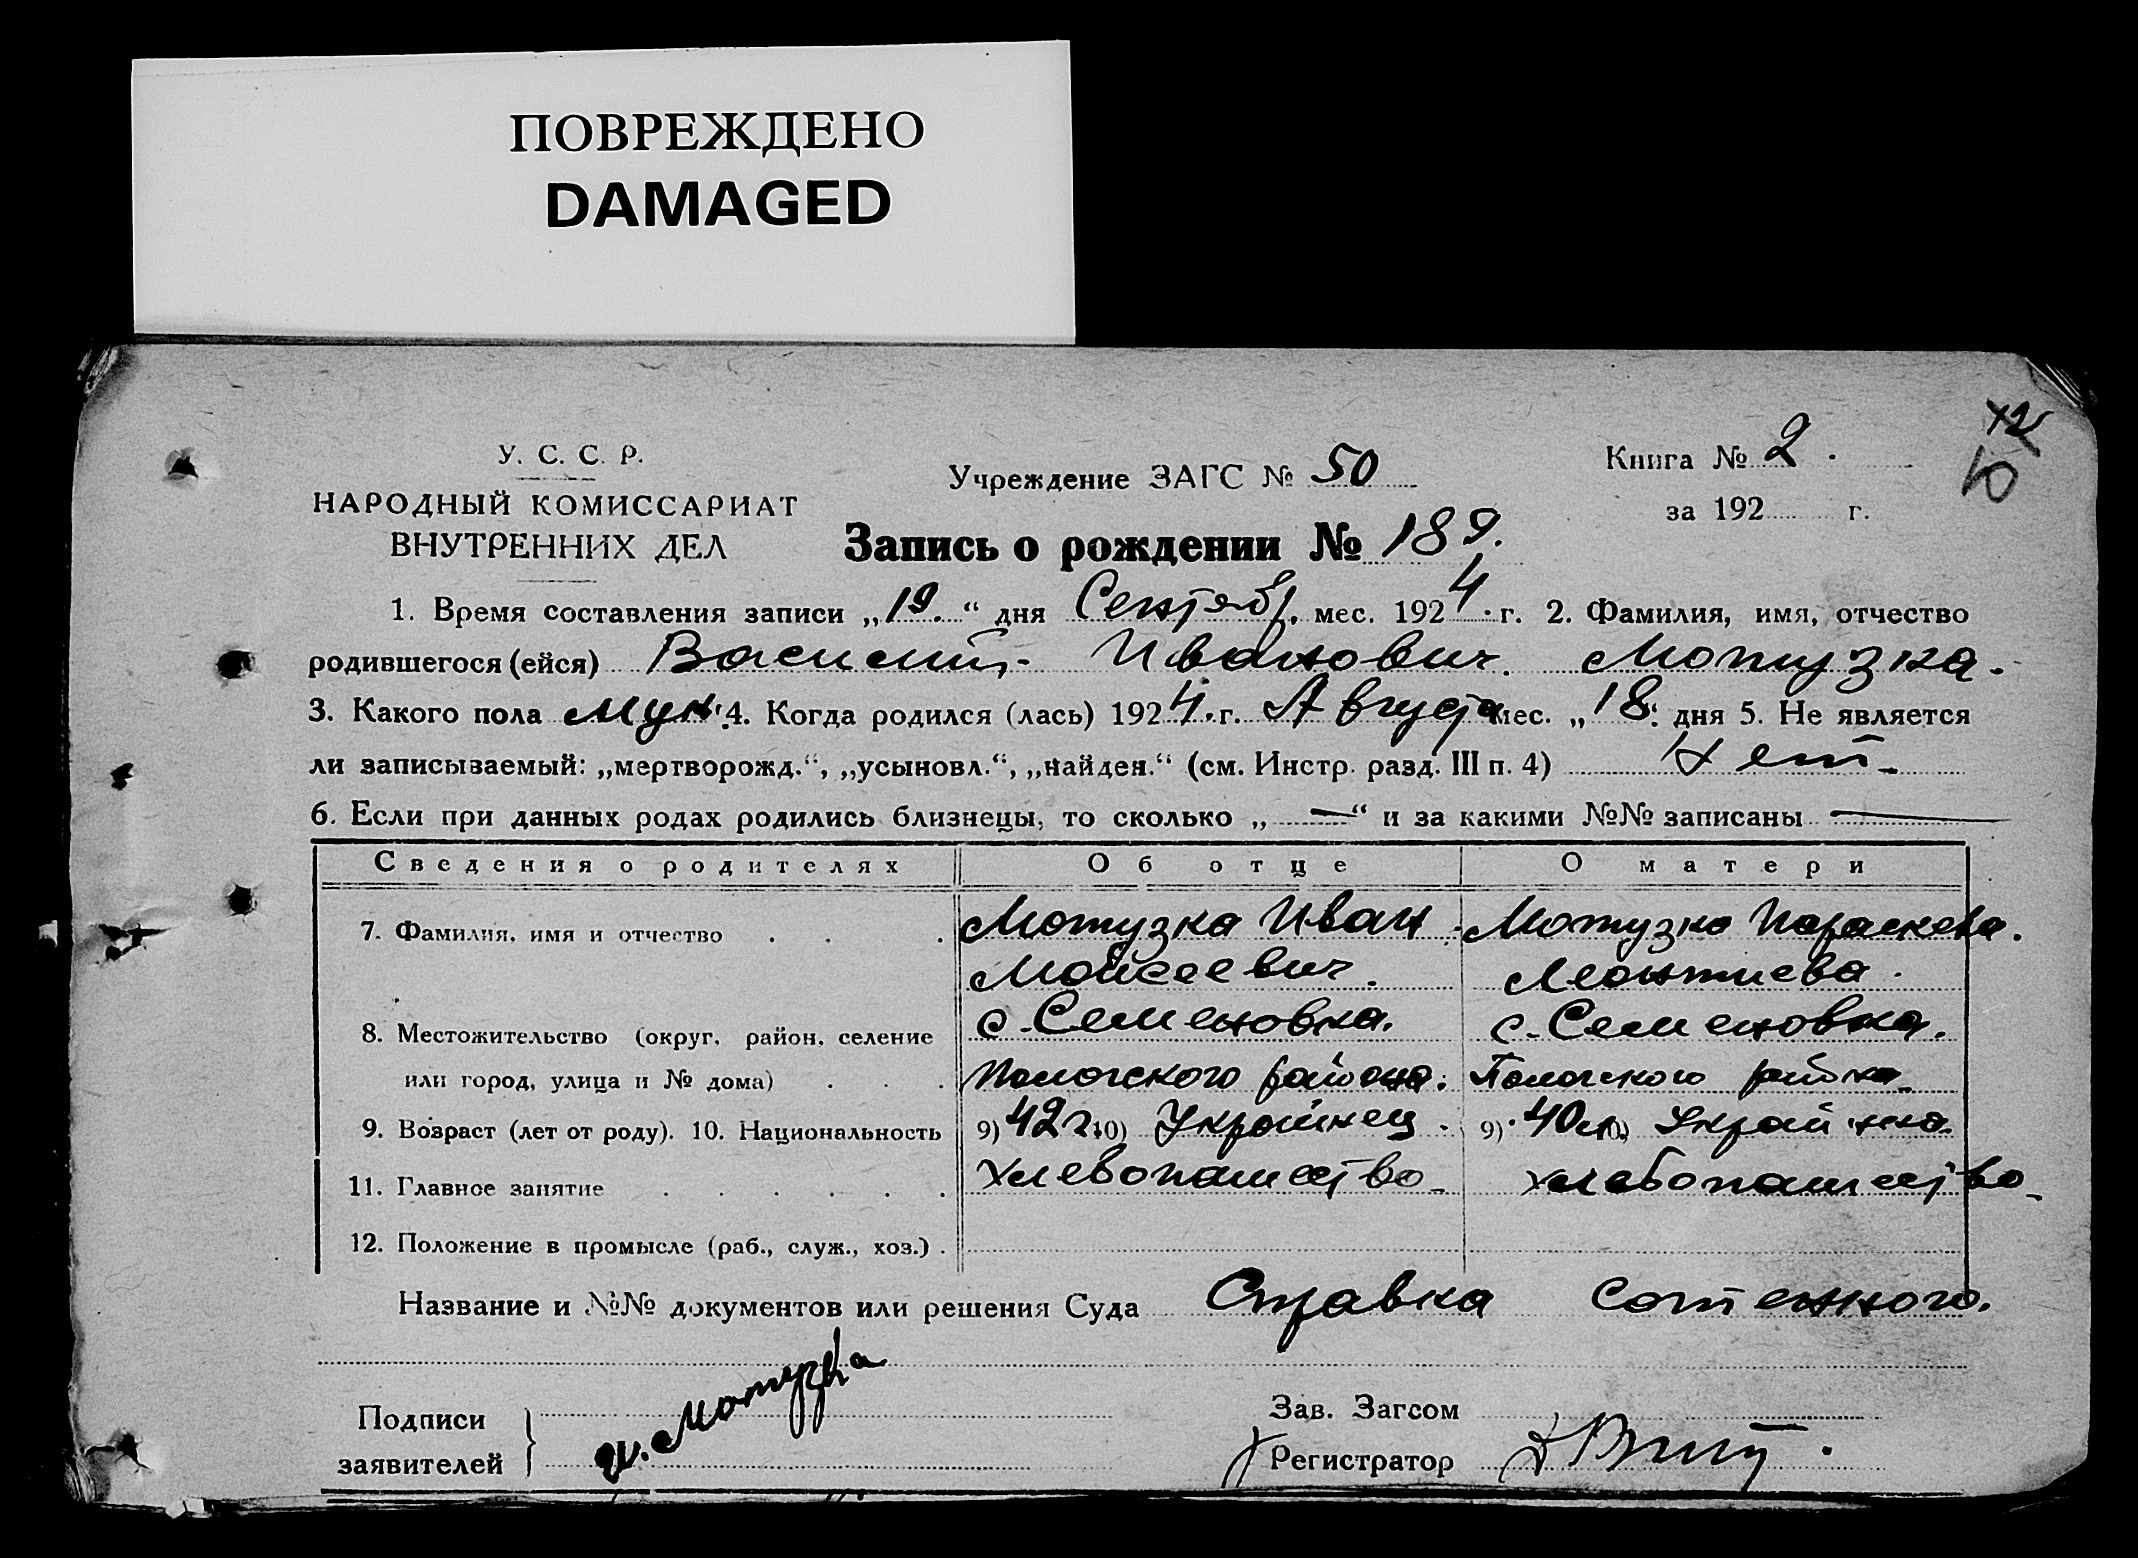 ПОВРЕЖДЕНО
DAMAGED
У. С. С. Р.
НАРОДНЫЙ КОМИССАРИАТ
ВНУТРЕННИХ ДЕЛ
Учреждение ЗАГС № 50
Книга № 2.
за 192 г.
Запись о рождении № 189.
1. Время составления записи „19.“ дня Сентябр. мес. 1924 г. 2. Фамилия, имя, отчество
родившегося (ейся) Василий Иванович Мотузка.
3. Какого пола муж. 4. Когда родился (лась) 1924. г. Августа мес. „18“ дня 5. Не является
ли записываемый: „мертворожд.“, „усыновл.“, „найден.“ (см. Инстр. разд. III п. 4) Нет
6. Если при данных родах родились близнецы, то сколько „—“ и за какими №№ записаны —
Сведения о родителях Об отце О матери
7. Фамилия, имя и отчество . . . Мотузка Иван Мотузка Параскева.
Мойсеевич. Леонтиева.
8. Местожительство (округ, район, селение с. Семеновка. с. Семеновка.
или город, улица и № дома) . . . Пологского района. Пологского района
9. Возраст (лет от роду). 10. Национальность 9) 42 г. 10) Украйнец. 9) 40 л. 10) Украйнка.
11. Главное занятие . . . . . . Хлевопашество хлебопашество
12. Положение в промысле (раб., служ., хоз.) .
Название и №№ документов или решения Суда Справка Сотенного.
Подписи
заявителей
Мотузка
Зав. Загсом
Регистратор